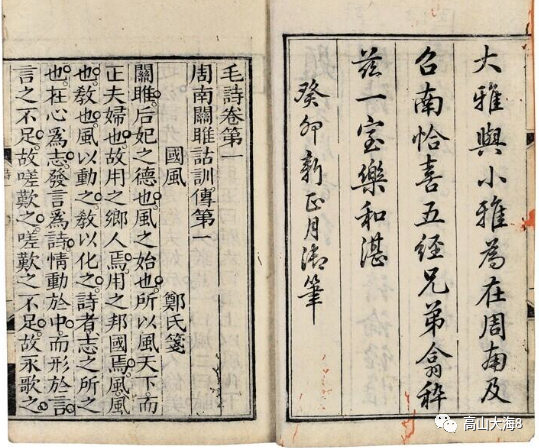 大雅與小雅為在周南及
召南恰喜五經兄弟翕稱
茲一室樂和湛
癸卯新正月御筆
毛詩卷第一
周南關雎詁訓傳第一
國風 鄭氏箋
關雎后妃之德也風之始也所以風天下而
正夫婦也故用之鄉人焉用之邦國焉風風
也教也風以動之教以化之詩者志之所之
也在心爲志發言爲詩情動於中而形於言
言之不足故嗟歎之嗟歎之不足故永歌之
高山大海8